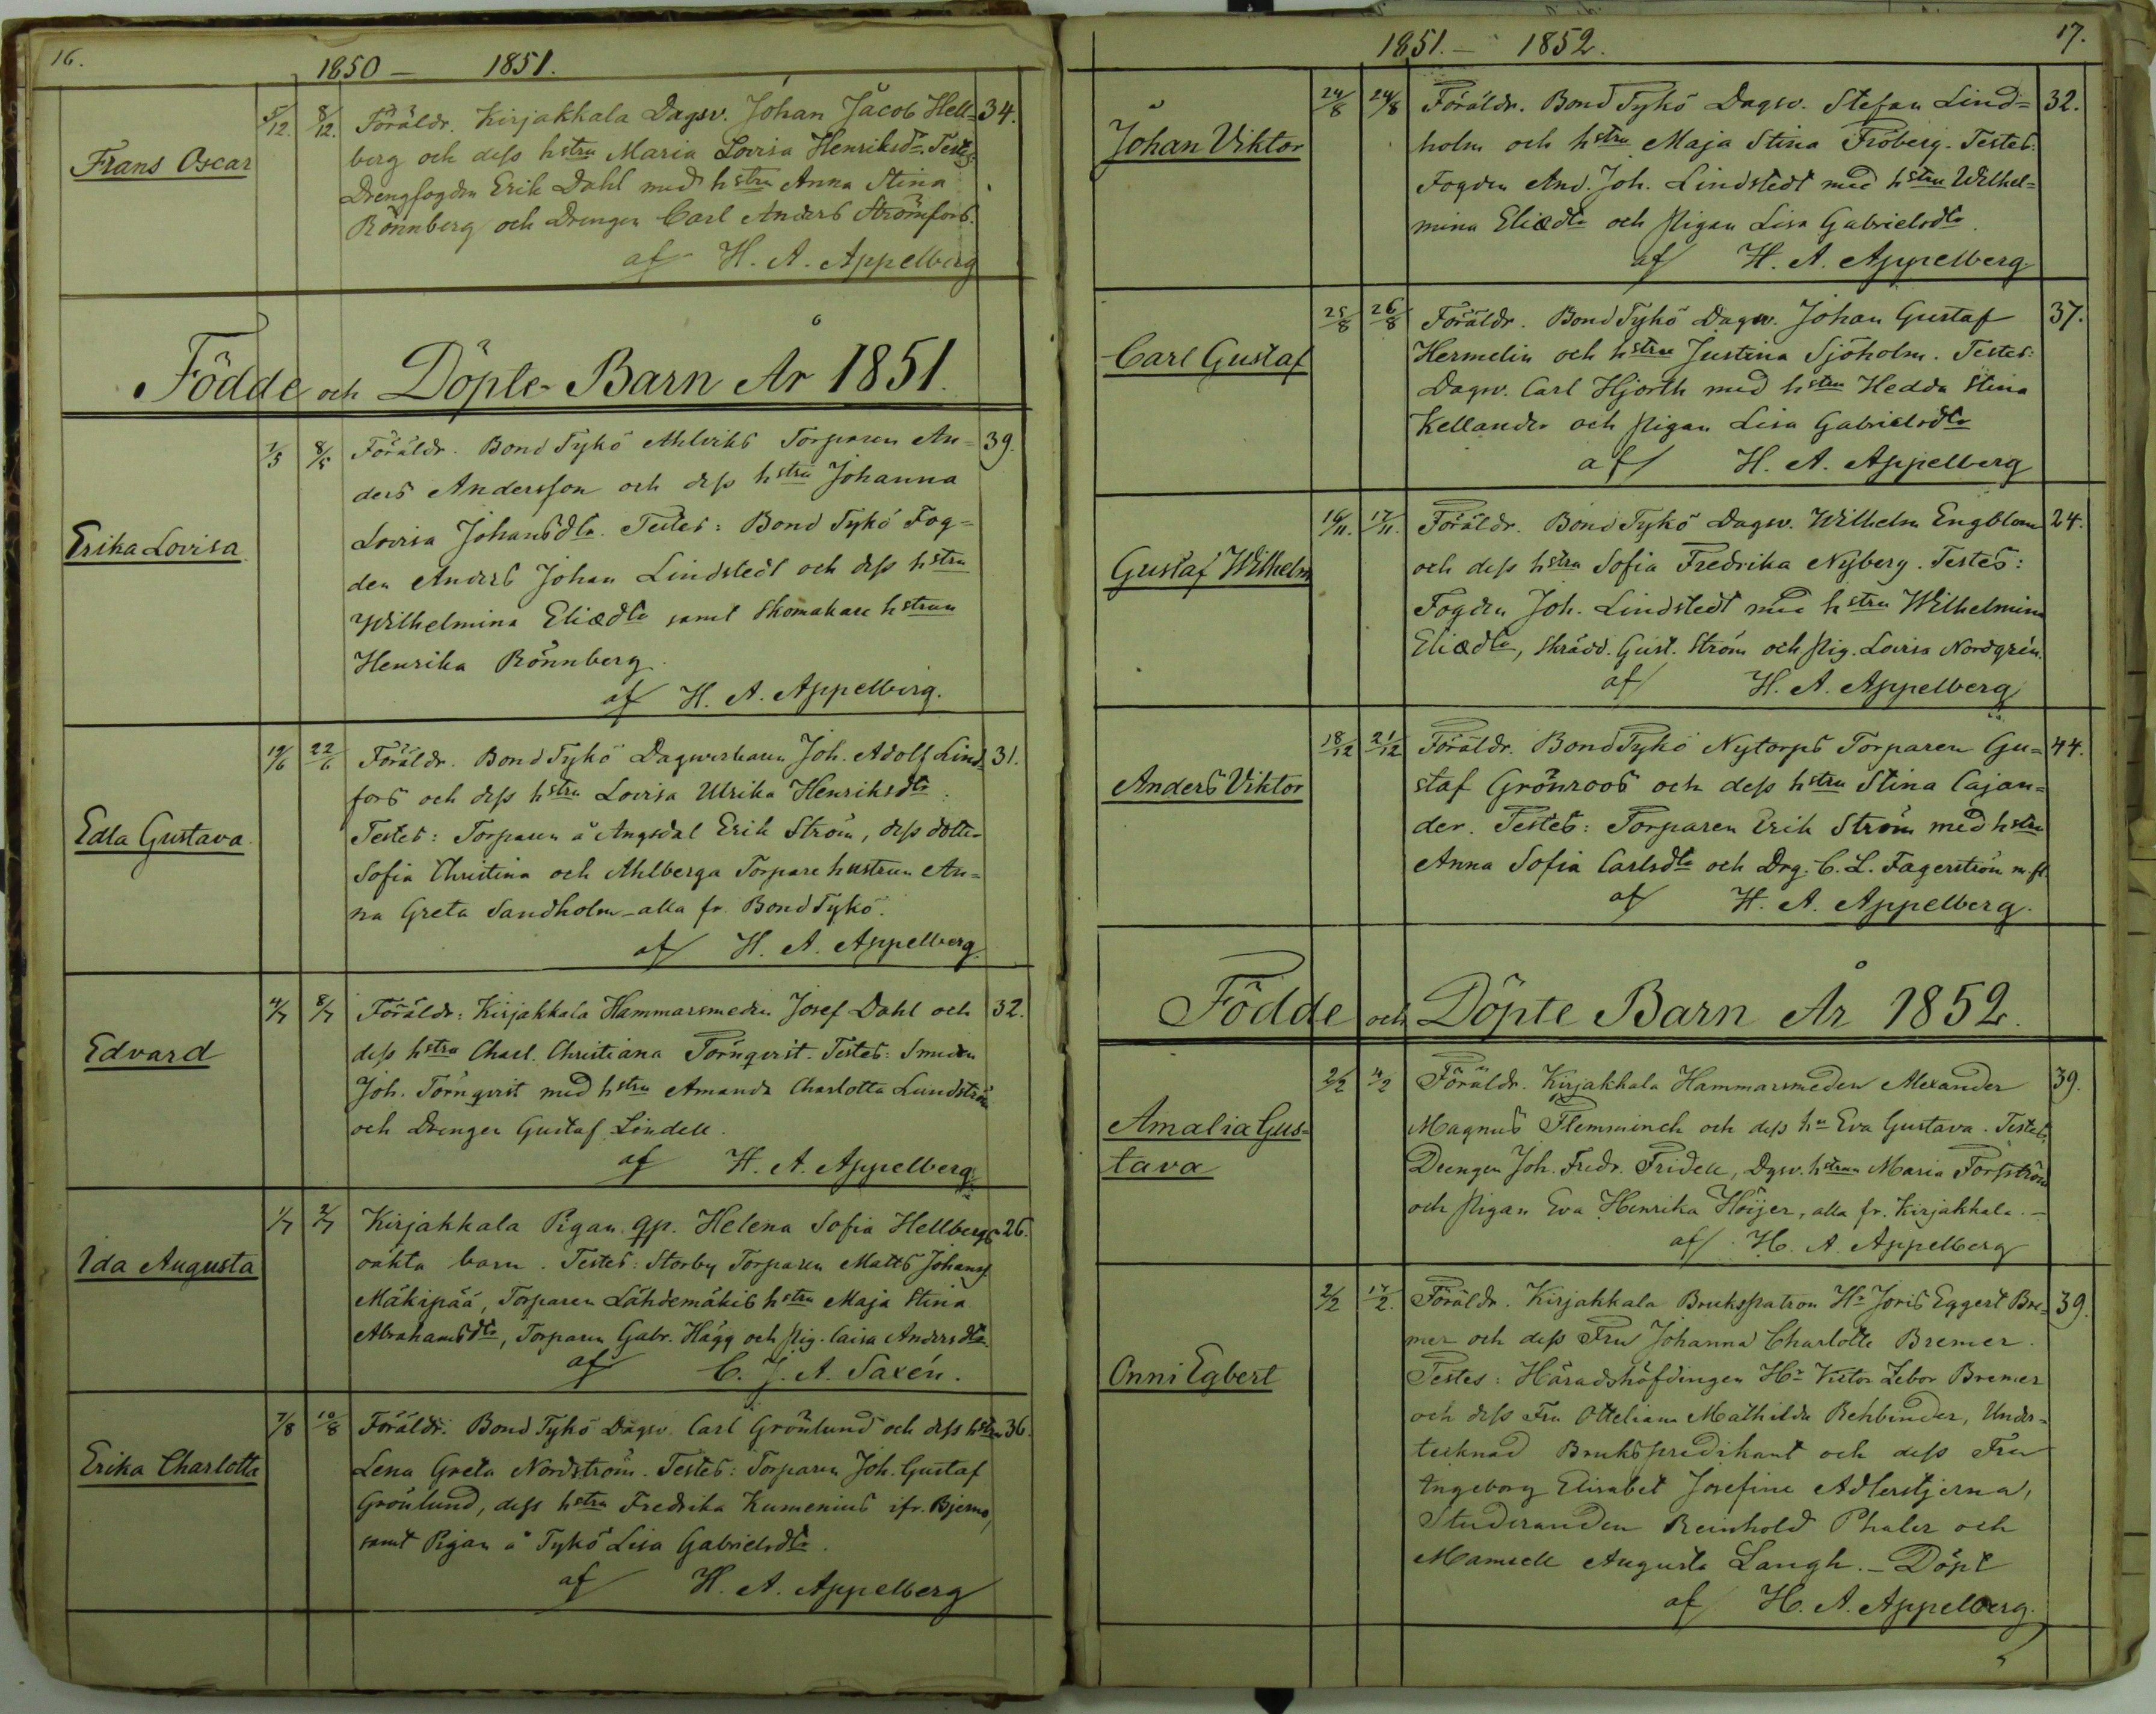 16.
1850 — 1851.
Frans Oscar
5/12. 8/12. Föräldr. Kirjakkala Dagsv. Johan Jacob Hell= 34.
berg och dess hstru Maria Lovisa Henriksdr. Testes:
Drengfogden Erik Dahl med hstru Anna Stina
Rönnberg och Drengen Carl Anders Strömfors.
af H. A. Appelberg
Födde och Döpte Barn År 1851.
Erika Lovisa
7/5 8/5 Föräldr. Bond Tykö Ahlviks Torparen An= 39.
ders Andersson och dess hstru Johanna
Lovisa Johansdtr. Testes: Bond Tykö Fog=
den Anders Johan Lindstedt och dess hstru
Wilhelmina Eliædtr samt Skomakare hstrun
Henrika Rönnberg.
af H. A. Appelberg.
Edla Gustava
19/6 22/6 Föräldr. Bond Tykö Dagsverkaren Joh. Adolf Lind= 31.
fors och dess hstru Lovisa Ulrika Henriksdtr.
Testes: Torparen å Angsdal Erik Ström, dess dotter
Sofia Christina och Ahlberga Torpare hustrun An=
na Greta Sandholm – alla fr. Bond Tykö.
af H. A. Appelberg.
Edvard
4/7 8/7 Föräldr: Kirjakkala Hammarsmeden Josef Dahl och 32.
dess hstru Charl. Christiana Törnqvist. Testes: Smeden
Joh. Törnqvist med hstru Amanda Charlotta Lundström
och Drengen Gustaf Lindell.
af H. A. Appelberg.
Ida Augusta
1/7 2/7 Kirjakkala Pigan qp. Helena Sofia Hellbergs 26.
oäkta barn. Testes: Storby Torparen Matts Johans.
Mäkipää, Torparen Lähdemäkis hstru Maja Stina
Abrahamsdtr, Torparen Gabr. Hägg och Pig. Caisa Andersdtr.
af C. J. A. Saxén.
Erika Charlotta
7/8 10/8 Föräldr. Bond Tykö Dagsv. Carl Grönlund och dess hstru 36.
Lena Greta Nordström. Testes: Torparen Joh. Gustaf
Grönlund, dess hstru Fredrika Kumenius ifr. Bjerno,
samt Pigan å Tykö Lisa Gabrielsdtr.
af H. A. Appelberg
1851. — 1852. 17.
Johan Viktor
24/8 24/8 Föräldr. Bond Tykö Dagsv. Stefan Lind= 32.
holm och hstru Maja Stina Fröberg. Testes:
Fogden And. Joh. Lindstedt med hstru Wilhel=
mina Eliædtr och Pigan Lisa Gabrielsdtr.
af H. A. Appelberg.
Carl Gustaf
25/8 26/8 Föräldr. Bond Tykö Dagsv. Johan Gustaf 37.
Hermelin och hstru Justina Sjöholm. Testes:
Dagsv. Carl Hjorth med hstru Hedda Stina
Kellander och Pigan Lisa Gabrielsdtr
af H. A. Appelberg
Gustaf Wilhelm
16/11. 17/11. Föräldr. Bond Tykö Dagsv. Wilhelm Engblom 24.
och dess hstru Sofia Fredrika Nyberg. Testes:
Fogden Joh. Lindstedt med hstru Wilhelmina
Eliædtr, Skrädd. Gust. Ström och Pig. Lovisa Nordgrén.
af H. A. Appelberg
Anders Viktor
18/12 21/12 Föräldr. Bond Tykö Nytorps Torparen Gu= 44.
staf Grönroos och dess hstru Stina Cajan=
der. Testes: Torparen Erik Ström med hstru
Anna Sofia Carlsdtr och Drg. C. L. Fagerström m. fl.
af H. A. Appelberg.
Födde och Döpte Barn År 1852.
Amalia Gus=
tava
2/2 4/2 Föräldr. Kirjakkala Hammarsmeden Alexander 39.
Magnus Flemminck och dess hu Eva Gustava. Testes:
Drengen Joh. Fredr. Fridell, Dgsv. hstrun Maria Forsström
och Pigan Eva Henrika Höijer, alla fr. Kirjakkala. –
af H. A. Appelberg
Onni Egbert
2/2 17/2. Föräldr. Kirjakkala Brukspatron Hr Joris Eggert Bre= 39.
mer och dess Fru Johanna Charlotte Bremer.
Testes: Häradshöfdingen Hr Victor Zebor Bremer
och dess Fru Otteliana Mathilda Rehbinder, Under=
tecknad Brukspredikant och dess Fru
Ingeborg Elisabet Josefine Adlerstjerna,
Studeranden Reinhold Phaler och
Mamsell Augusta Langh. – Döpt
af H. A. Appelberg.